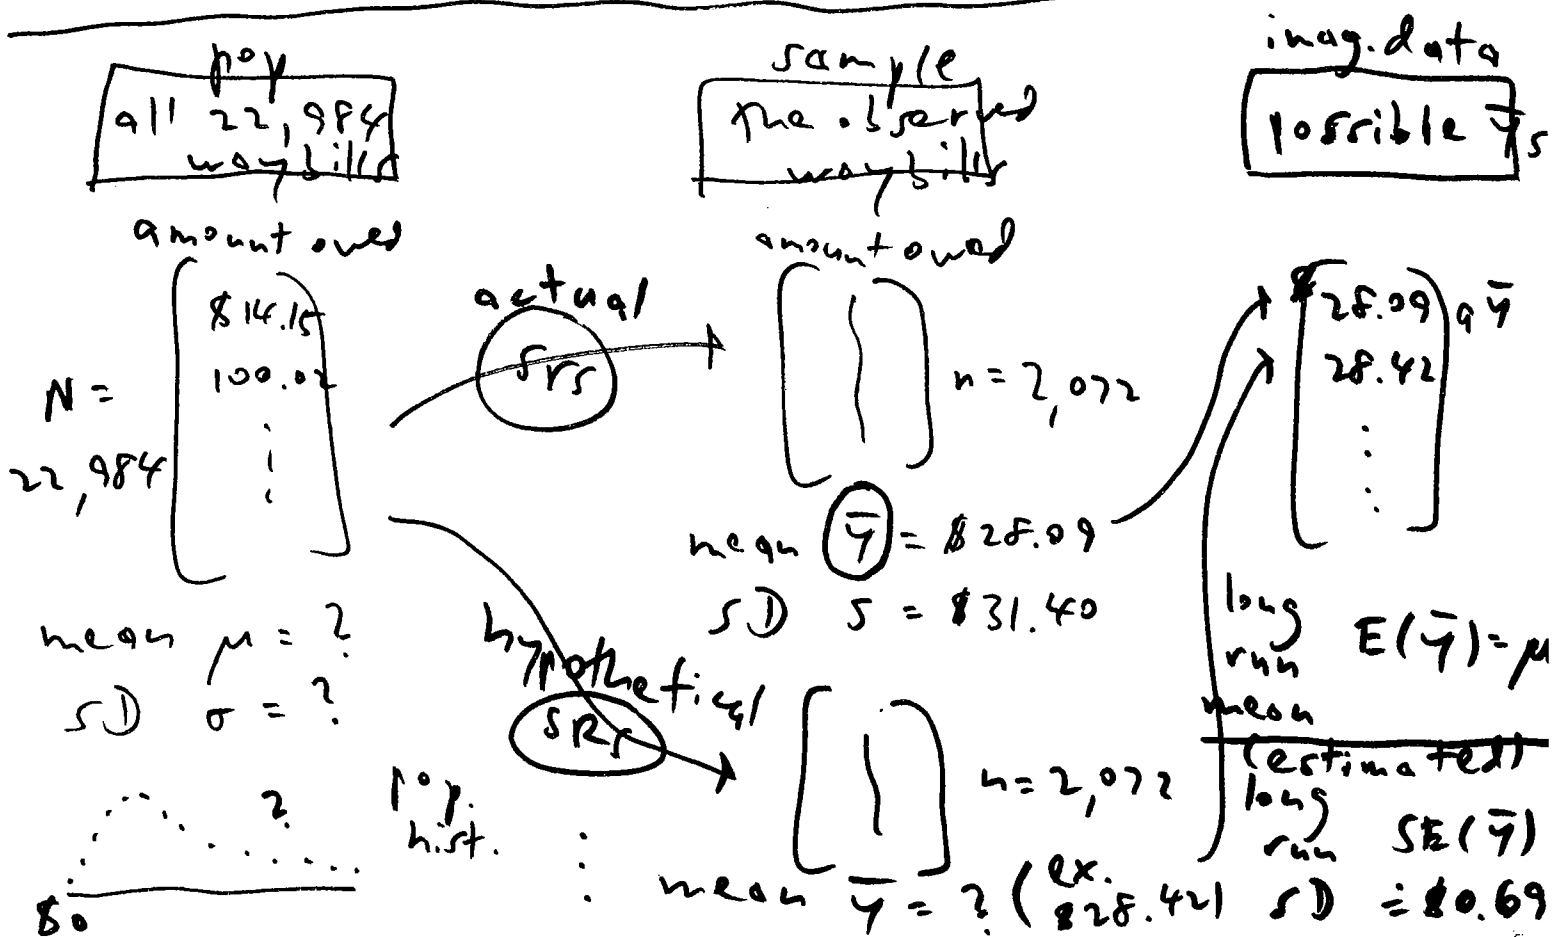 pop
all 22,984
waybills
amount owed
$14.15
100.02
N =
22,984
mean μ = ?
SD σ = ?
?
$0
pop.
hist.
actual
SRS
hypothetical
SRS
sample
the observed
waybills
amount owed
n = 2,072
mean ȳ = $28.09
SD s = $31.40
n = 2,072
mean ȳ = ? (ex. $28.42)
imag. data
possible ȳs
$28.09 a ȳ
28.42
long
run
mean
E(ȳ) = μ
(estimated)
long
run
SD
SE(ȳ)
≐ $0.69